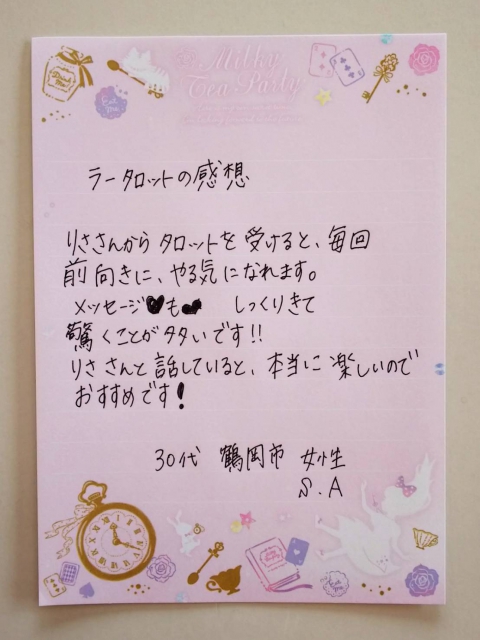 Milky
Tea Party
ラータロットの感想
りささんからタロットを受けると、毎回
前向きに、やる気になれます。
メッセージ♥も しっくりきて
驚くことが多いです!!
りささんと話していると、本当に楽しいので
おすすめです!
30代 鶴岡市 女性
S.A